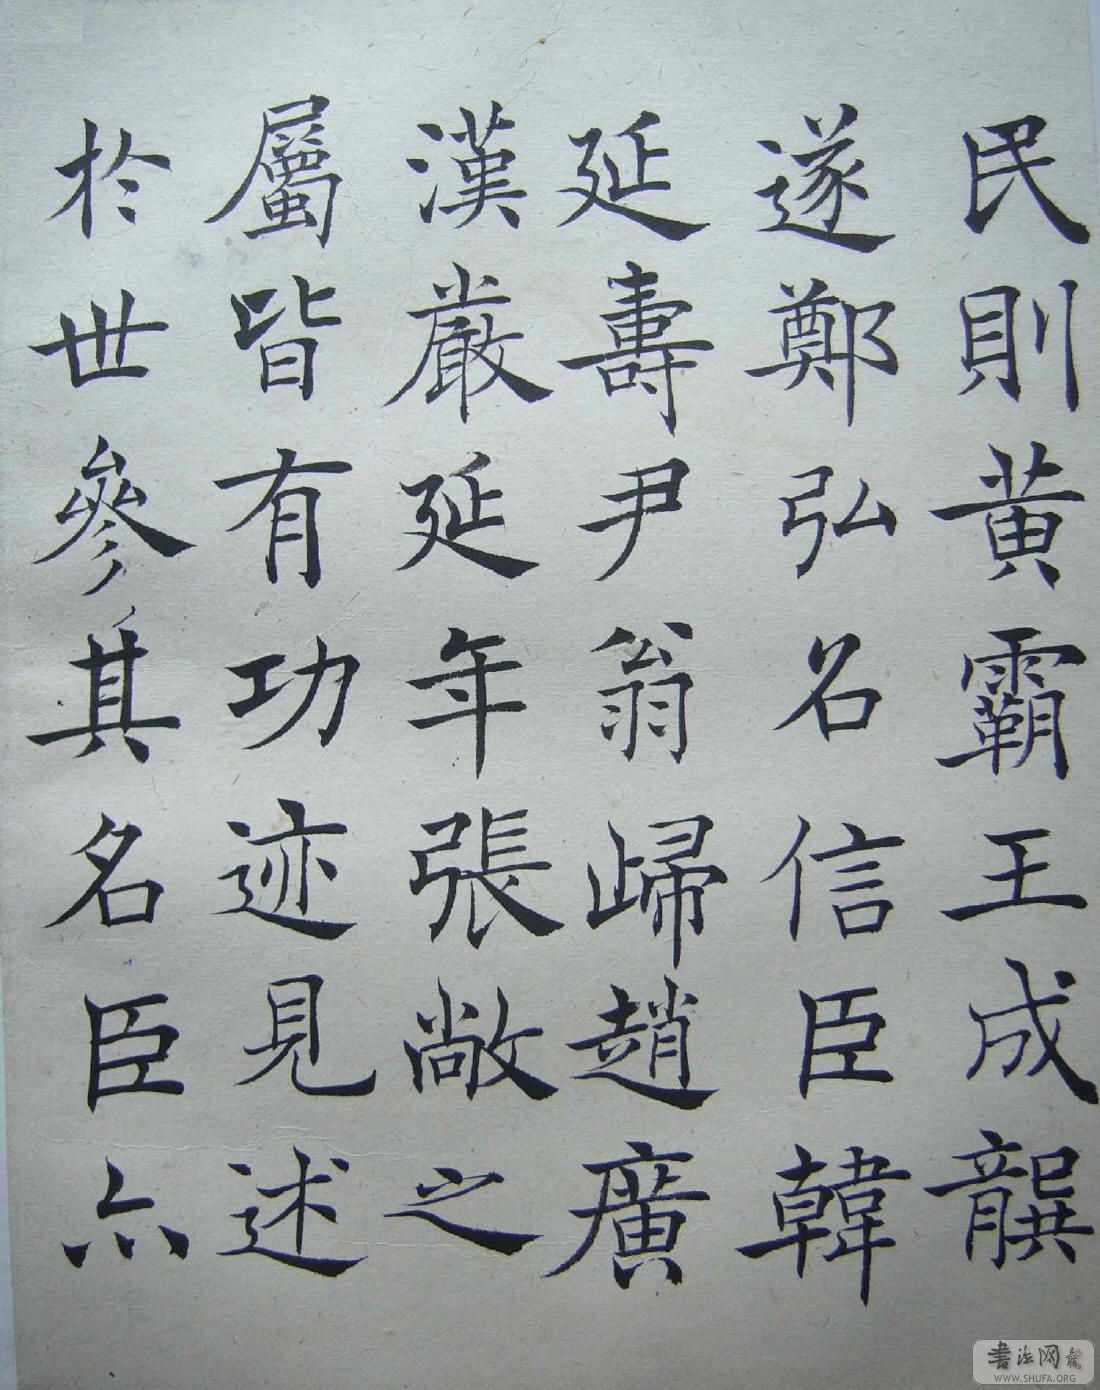 民則黄霸王成龔
遂鄭弘名信臣韓
延壽尹翁歸趙廣
漢嚴延年張敞之
屬皆有功迹見述
於世參其名臣亦
書法网
WWW.SHUFA.ORG